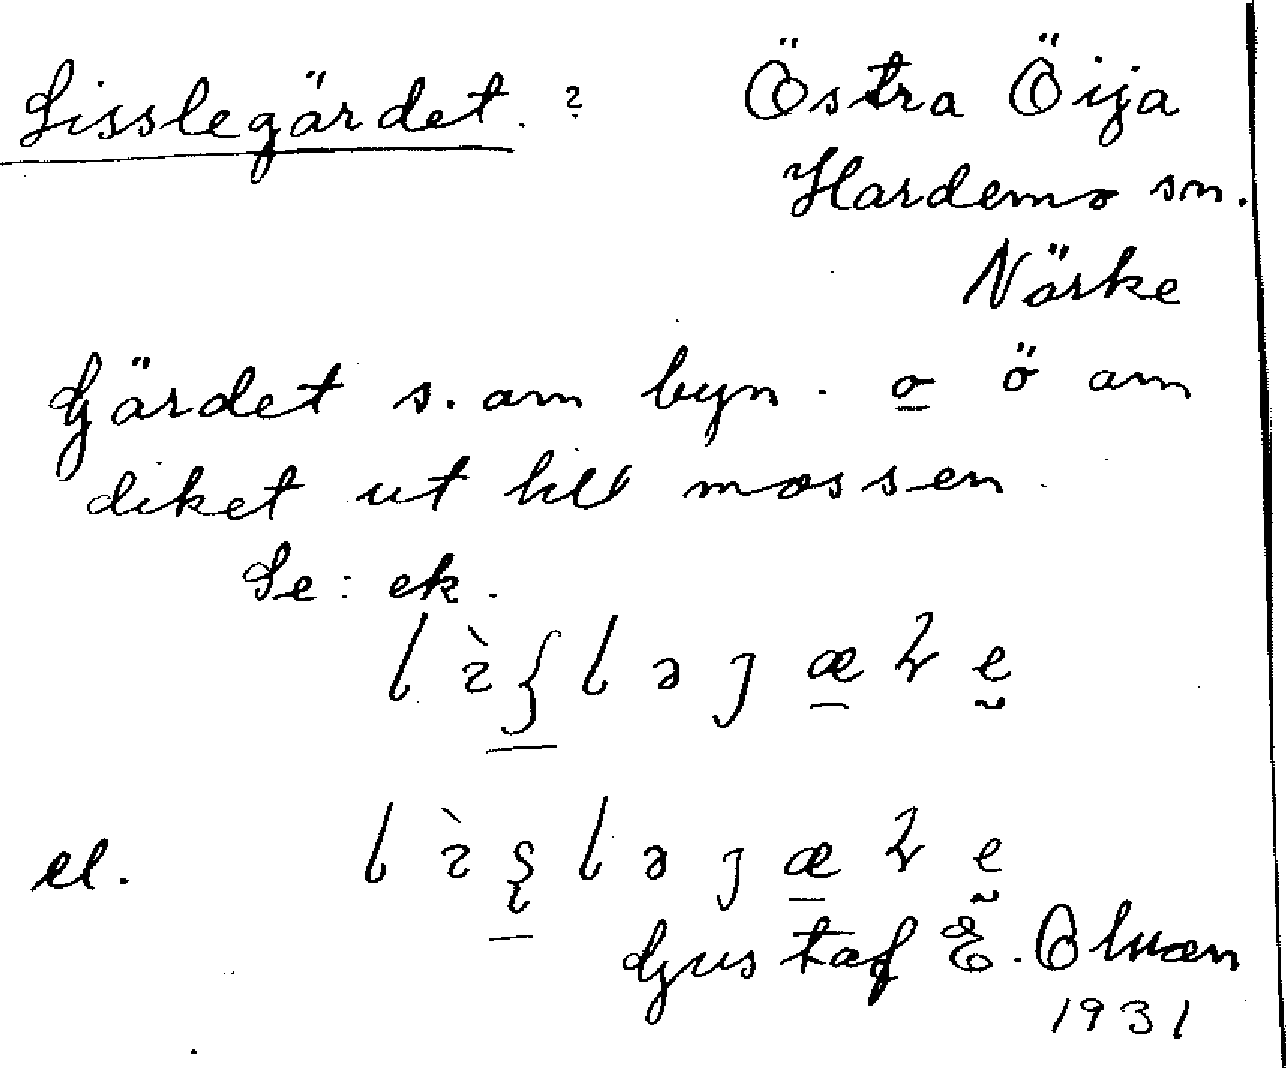 Lisslegärdet. ? Östra Öija
Hardemo sn.
Närke
Gärdet s. om byn. o ö om
diket ut till mossen.
Se: ek.
el.
Gustaf E.
1931